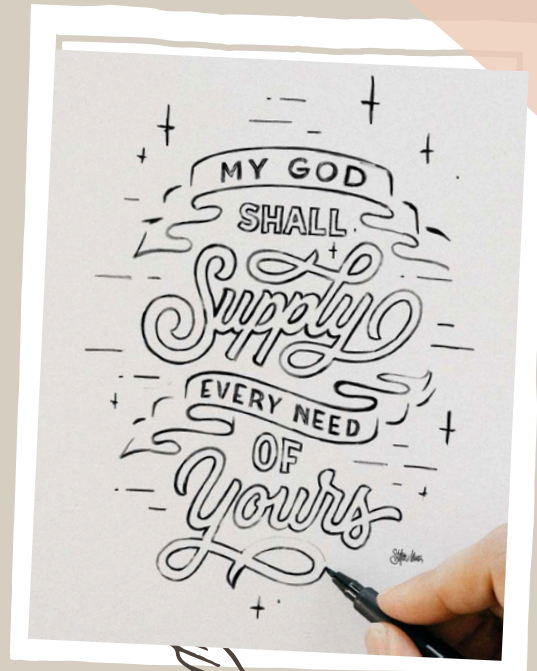 MY GOD
SHALL
Supply
EVERY NEED
OF
Yours